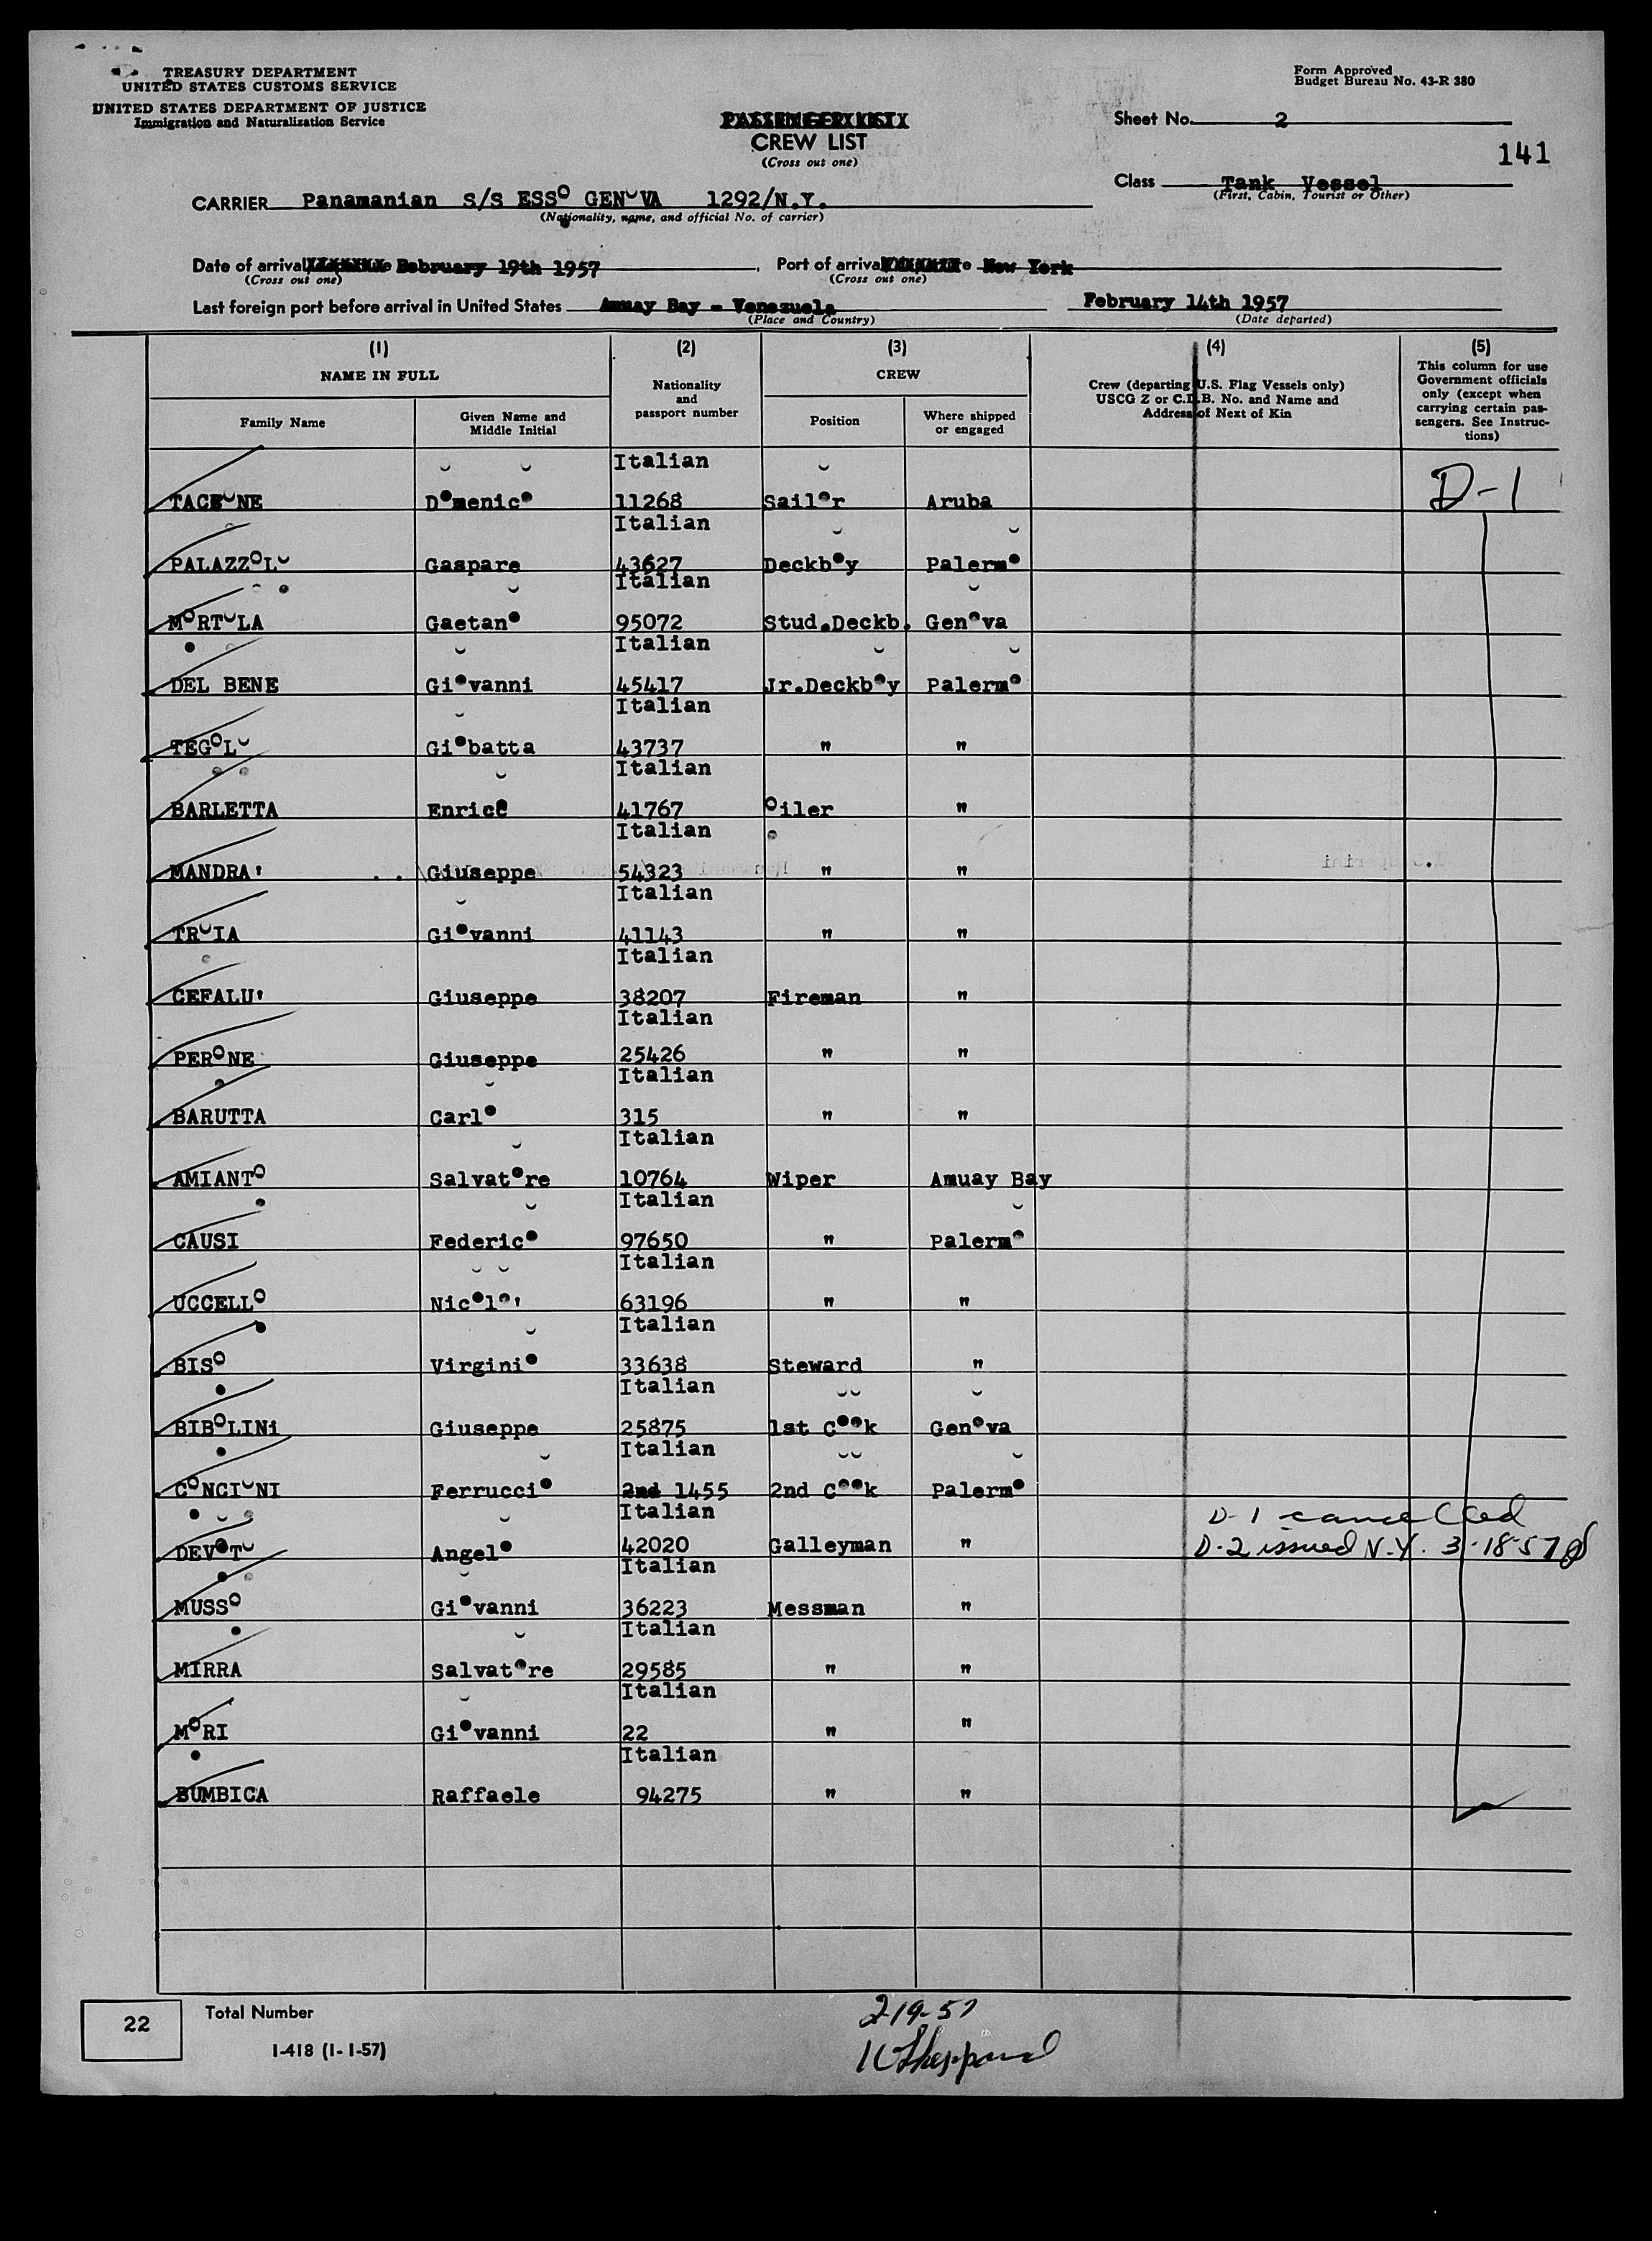 TREASURY DEPARTMENT
UNITED STATES CUSTOMS SERVICE
UNITED STATES DEPARTMENT OF JUSTICE
Immigration and Naturalization Service
Form Approved
Budget Bureau No. 43-R 380
PASSENGER LIST
CREW LIST
(Cross out one)
Sheet No. 2
141
Class Tank Vessel
(First, Cabin, Tourist or Other)
CARRIER Panamanian S/S ESSO GENOVA 1292/N.Y.
(Nationality, name, and official No. of carrier)
Date of arrival February 19th 1957 Port of arrival New York
(Cross out one) (Cross out one)
Last foreign port before arrival in United States Amuay Bay - Venezuela February 14th 1957
(Place and Country) (Date departed)
(1) (2) (3) (4) (5)
NAME IN FULL Nationality and passport number CREW Crew (departing U.S. Flag Vessels only) USCG Z or C.D.B. No. and Name and Address of Next of Kin This column for use Government officials only (except when carrying certain passengers. See Instructions)
Family Name Given Name and Middle Initial Position Where shipped or engaged
Italian
TACEONE Domenico 11268 Sailor Aruba D-1
Italian
PALAZZOLO Gaspare 43627 Deckboy Palermo
Italian
MORTOLA Gaetano 95072 Stud.Deckb. Genova
Italian
DEL BENE Giovanni 45417 Jr.Deckboy Palermo
Italian
TEGOLO Giobatta 43737 " "
Italian
BARLETTA Enrico 41767 Oiler "
Italian
MANDRA' Giuseppe 54323 " "
Italian
TROIA Giovanni 41143 " "
Italian
CEFALU' Giuseppe 38207 Fireman "
Italian
PERONE Giuseppe 25426 " "
Italian
BARUTTA Carlo 315 " "
Italian
AMIANTO Salvatore 10764 Wiper Amuay Bay
Italian
CAUSI Federico 97650 " Palermo
Italian
UCCELLO Nicolo' 63196 " "
Italian
BISO Virginio 33638 Steward "
Italian
BIBOLINi Giuseppe 25875 1st Cook Genova
Italian
CONCIONI Ferruccio 2nd 1455 2nd Cook Palermo
Italian D-1 cancelled
DEVOTO Angelo 42020 Galleyman " D-2 issued N.Y. 3-18-57
Italian
MUSSO Giovanni 36223 Messman "
Italian
MIRRA Salvatore 29585 " "
Italian
MORI Giovanni 22 " "
Italian
BUMBICA Raffaele 94275 " "
22 Total Number
I-418 (1-1-57)
2-19-57
Sheppard